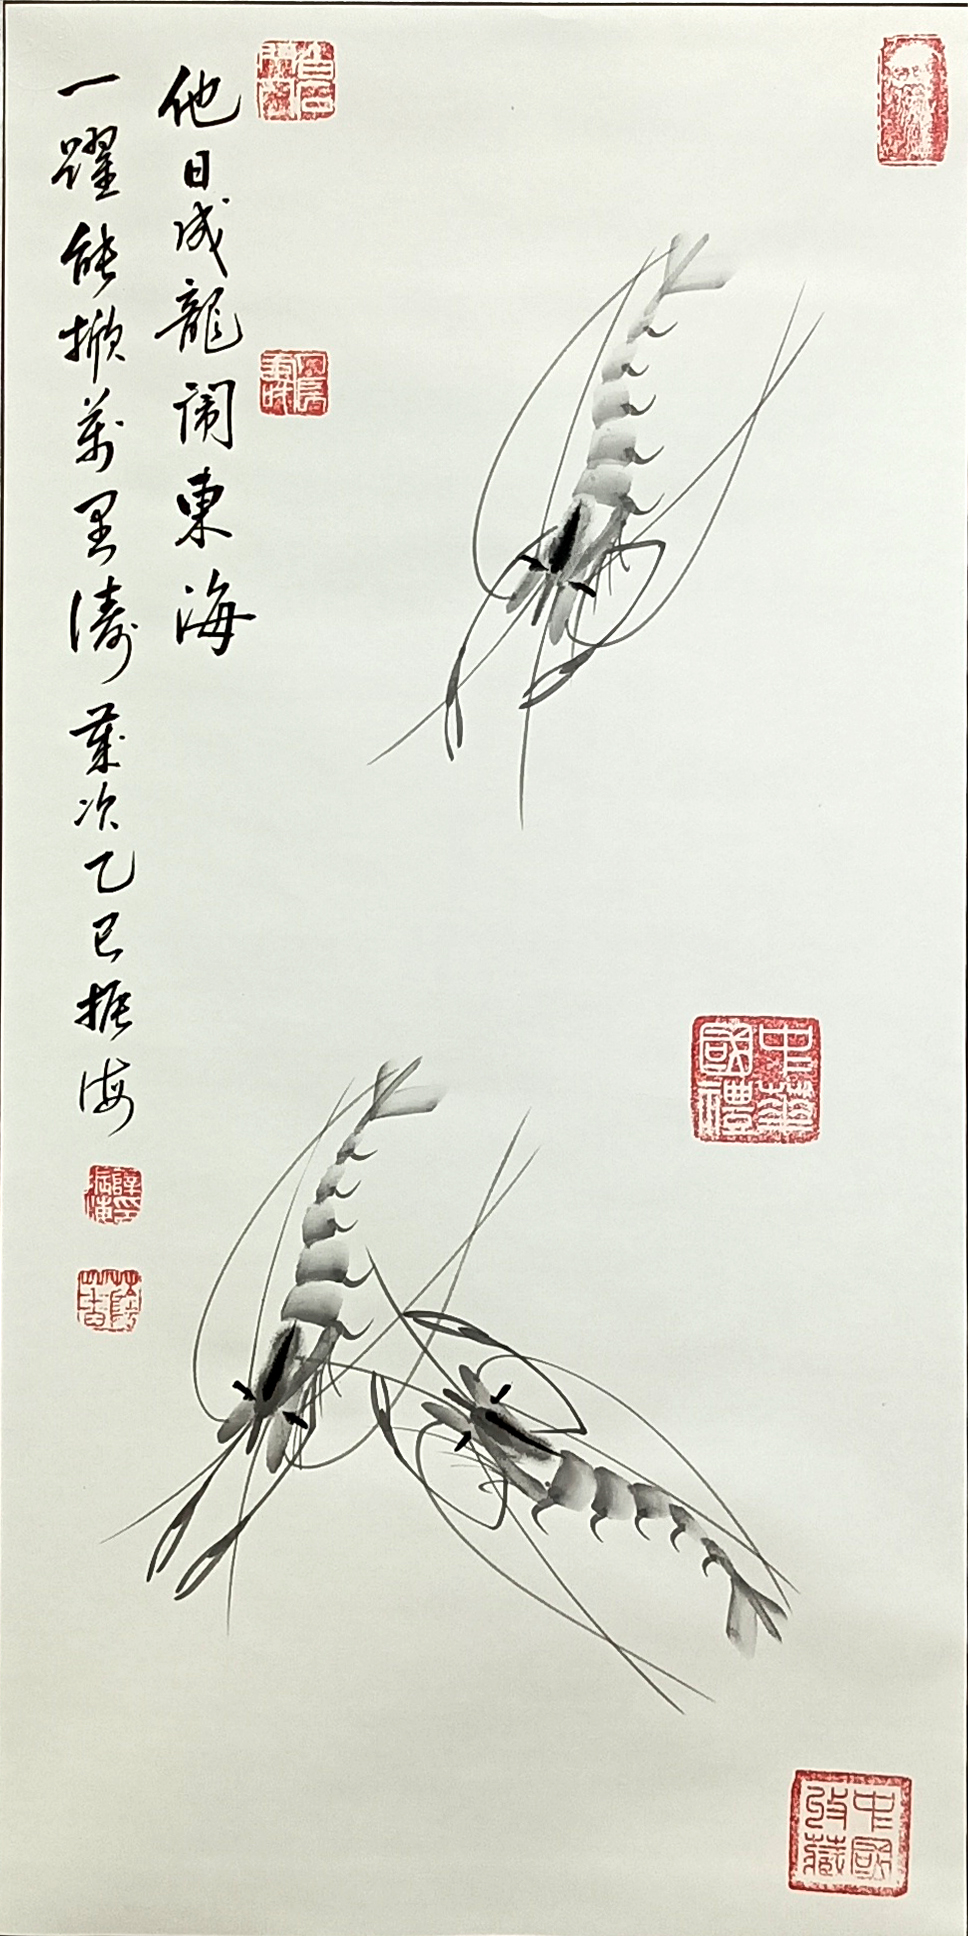 他日成龍闹東海
一躍能掀萬里濤歲次乙巳振海
中華國禮
中國收藏